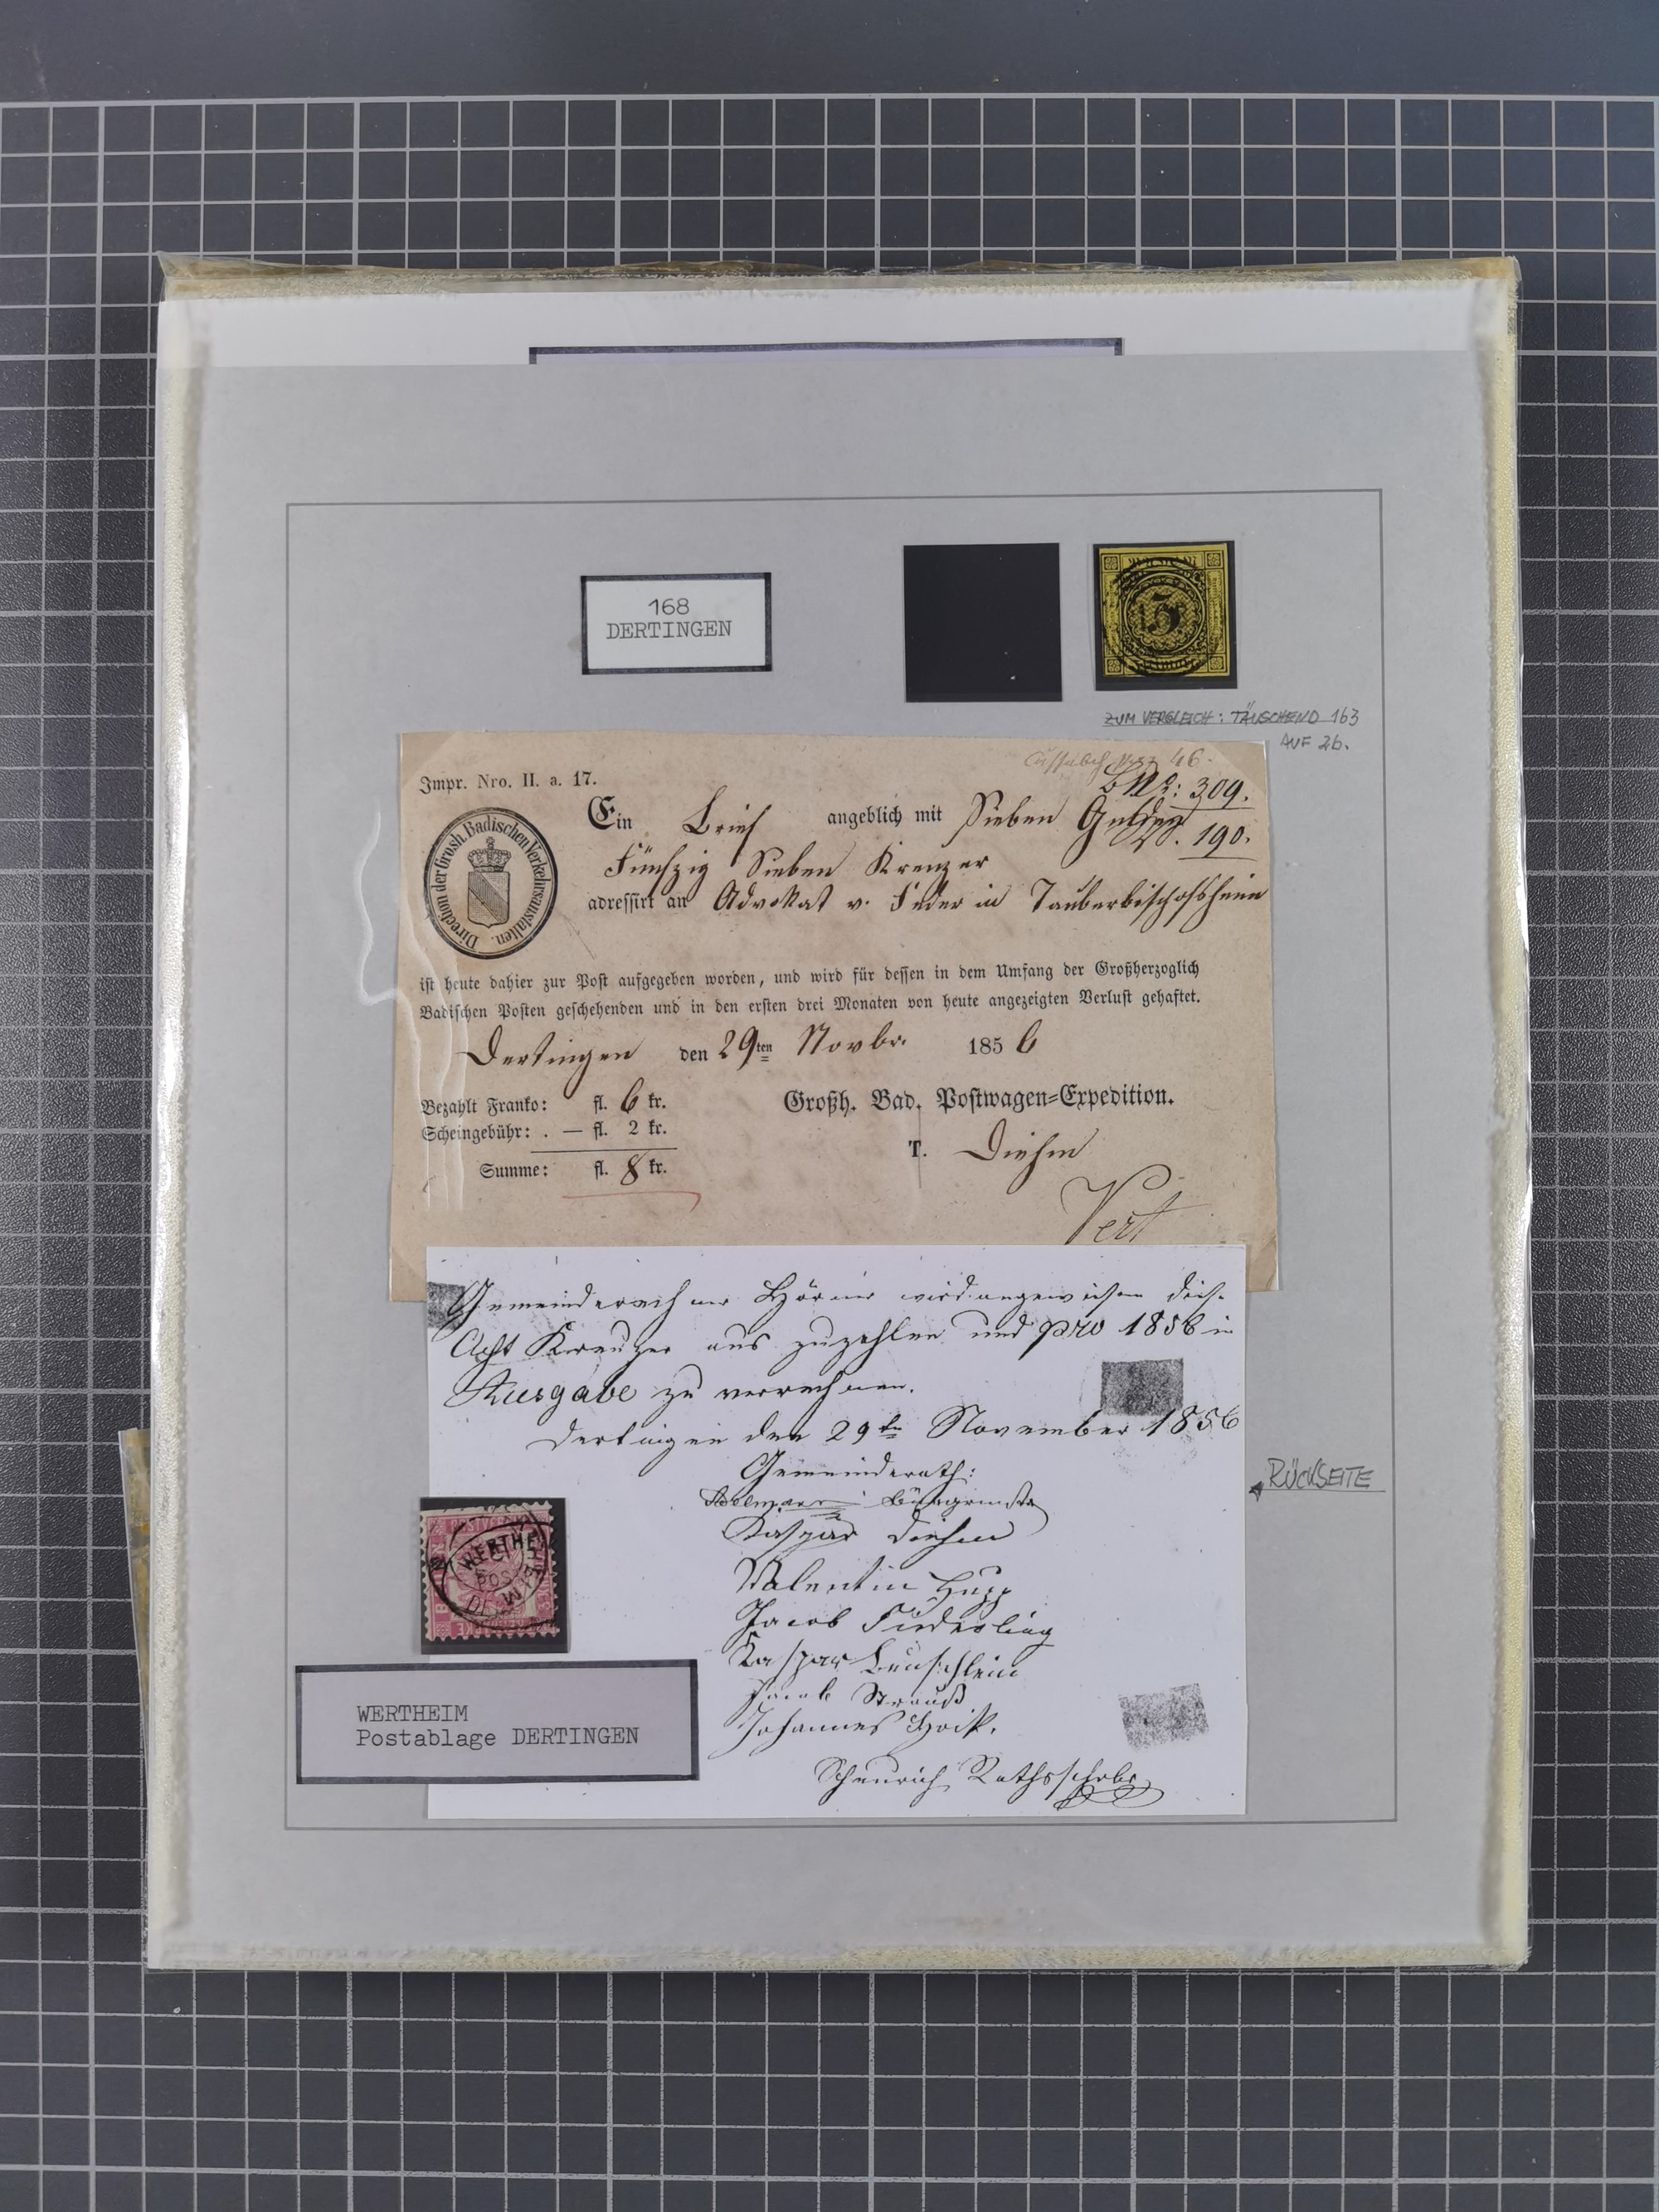 168
DERTINGEN
3
ZUM VERGLEICH: TÄUSCHEND 163
AUF 2b.
Impr. Nro. II. a. 17.
No: 309.
190.
Direction der Grosh. Badischen Verkehrsanstalten.
Ein Brief angeblich mit Sieben Gulden
Fünfzig Sieben Kreuzer
adressirt an Advokat v. Feder in Tauberbischofsheim
ist heute dahier zur Post aufgegeben worden, und wird für dessen in dem Umfang der Großherzoglich
Badischen Posten geschehenden und in den ersten drei Monaten von heute angezeigten Verlust gehaftet.
Dertingen den 29ten Novbr. 1856
Bezahlt Franko: fl. 6 kr.
Scheingebühr: . — fl. 2 kr.
Summe: fl. 8 kr.
Großh. Bad. Postwagen=Expedition.
T. Diehm
Vert
Gemeinderechner Hörner wird angewiesen diese
Acht Kreuzer aus zuzahlen und pro 1856 in
Ausgabe zu verrechnen.
Dertingen den 29ten November 1856
Gemeinderath:
Bürgermstr
Kaspar Diehm
Valentin Hupp
Jacob Fiederling
Kaspar
Jacob Strauß
Johannes
Scheurich Rathsschrbr
RÜCKSEITE
POSTVEREIN
WERTHE
POST
WERTHEIM
Postablage DERTINGEN